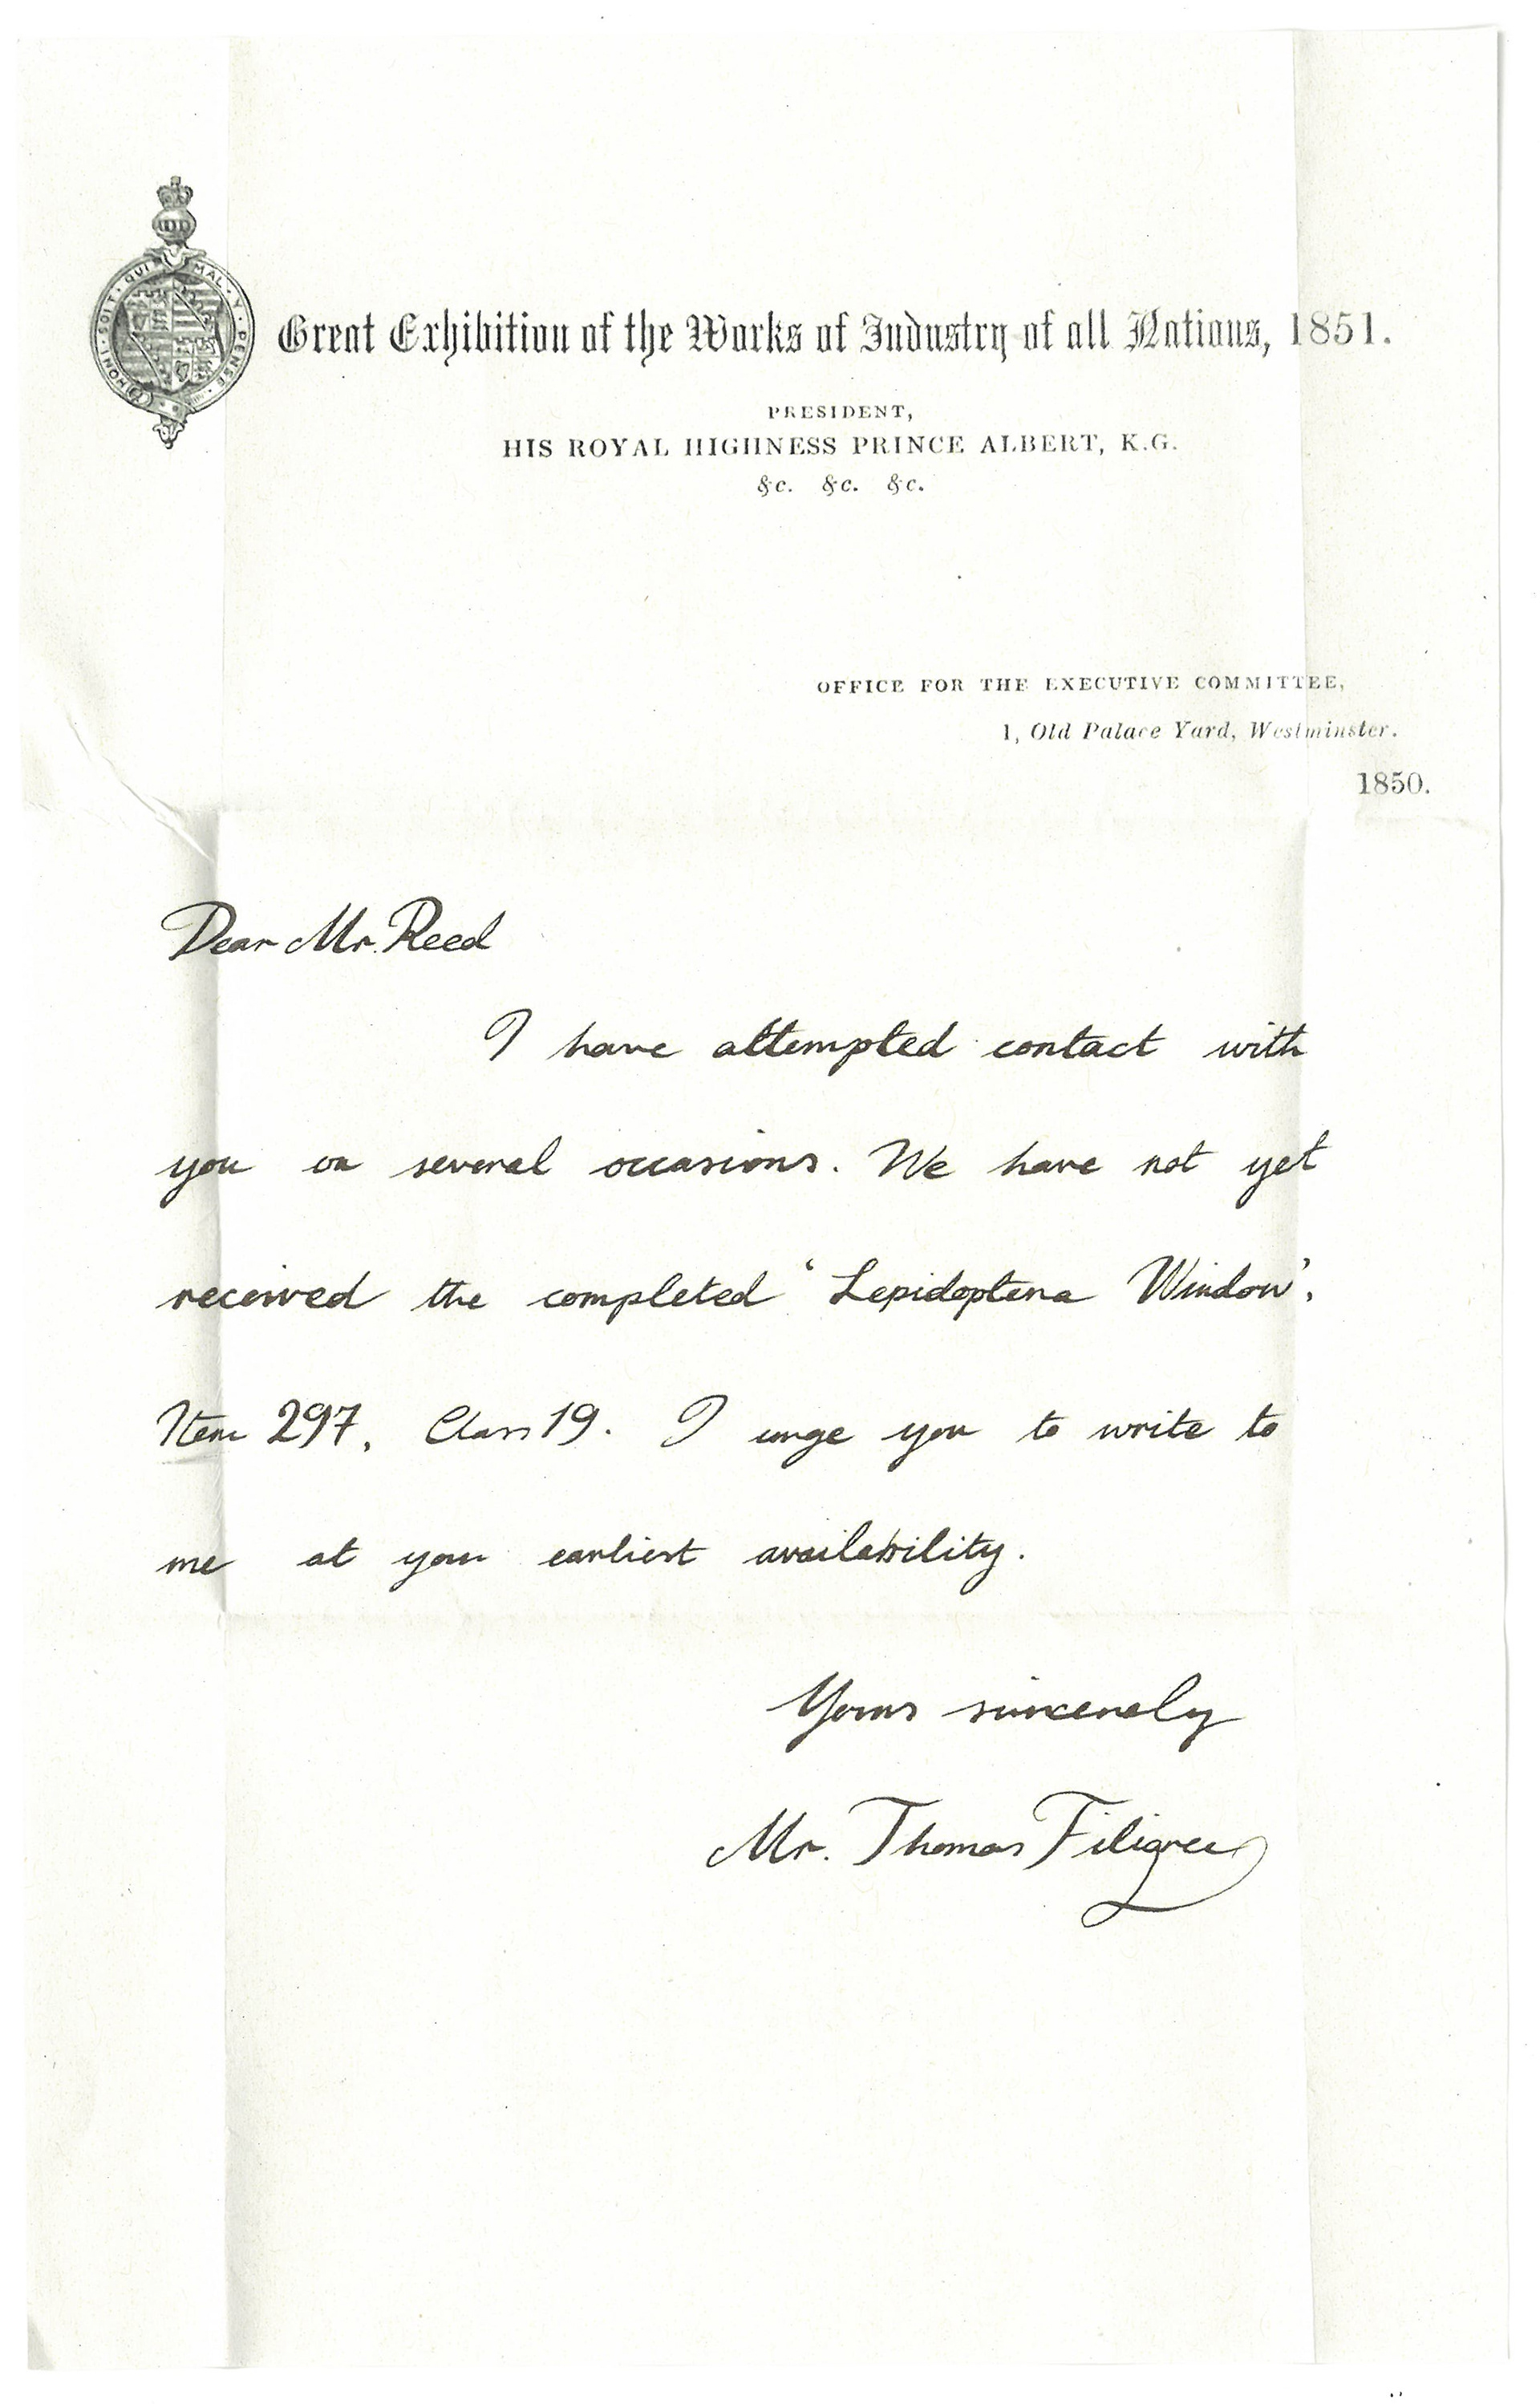 HONI · SOIT · QUI · MAL · Y · PENSE
Great Exhibition of the Works of Industry of all Nations, 1851.
PRESIDENT,
HIS ROYAL HIGHNESS PRINCE ALBERT, K.G.
&c. &c. &c.
OFFICE FOR THE EXECUTIVE COMMITTEE,
1, Old Palace Yard, Westminster.
1850.
Dear Mr. Reed
I have attempted contact with
you on several occasions. We have not yet
received the completed 'Lepidoptera Window'.
Item 297, Class 19. I urge you to write to
me at your earliest availability.
Yours sincerely
Mr. Thomas Filigree